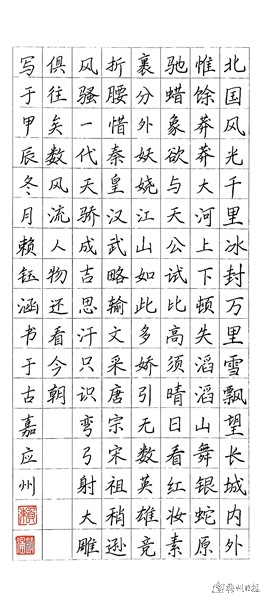 北国风光千里冰封万里雪飘望长城内外
惟馀莽莽大河上下顿失滔滔山舞银蛇原
驰蜡象欲与天公试比高须晴日看红妆素
裹分外妖娆江山如此多娇引无数英雄竞
折腰惜秦皇汉武略输文采唐宗宋祖稍逊
风骚一代天骄成吉思汗只识弯弓射大雕
俱往矣数风流人物还看今朝
写于甲辰冬月赖钰涵书于古嘉应州
梅州日报